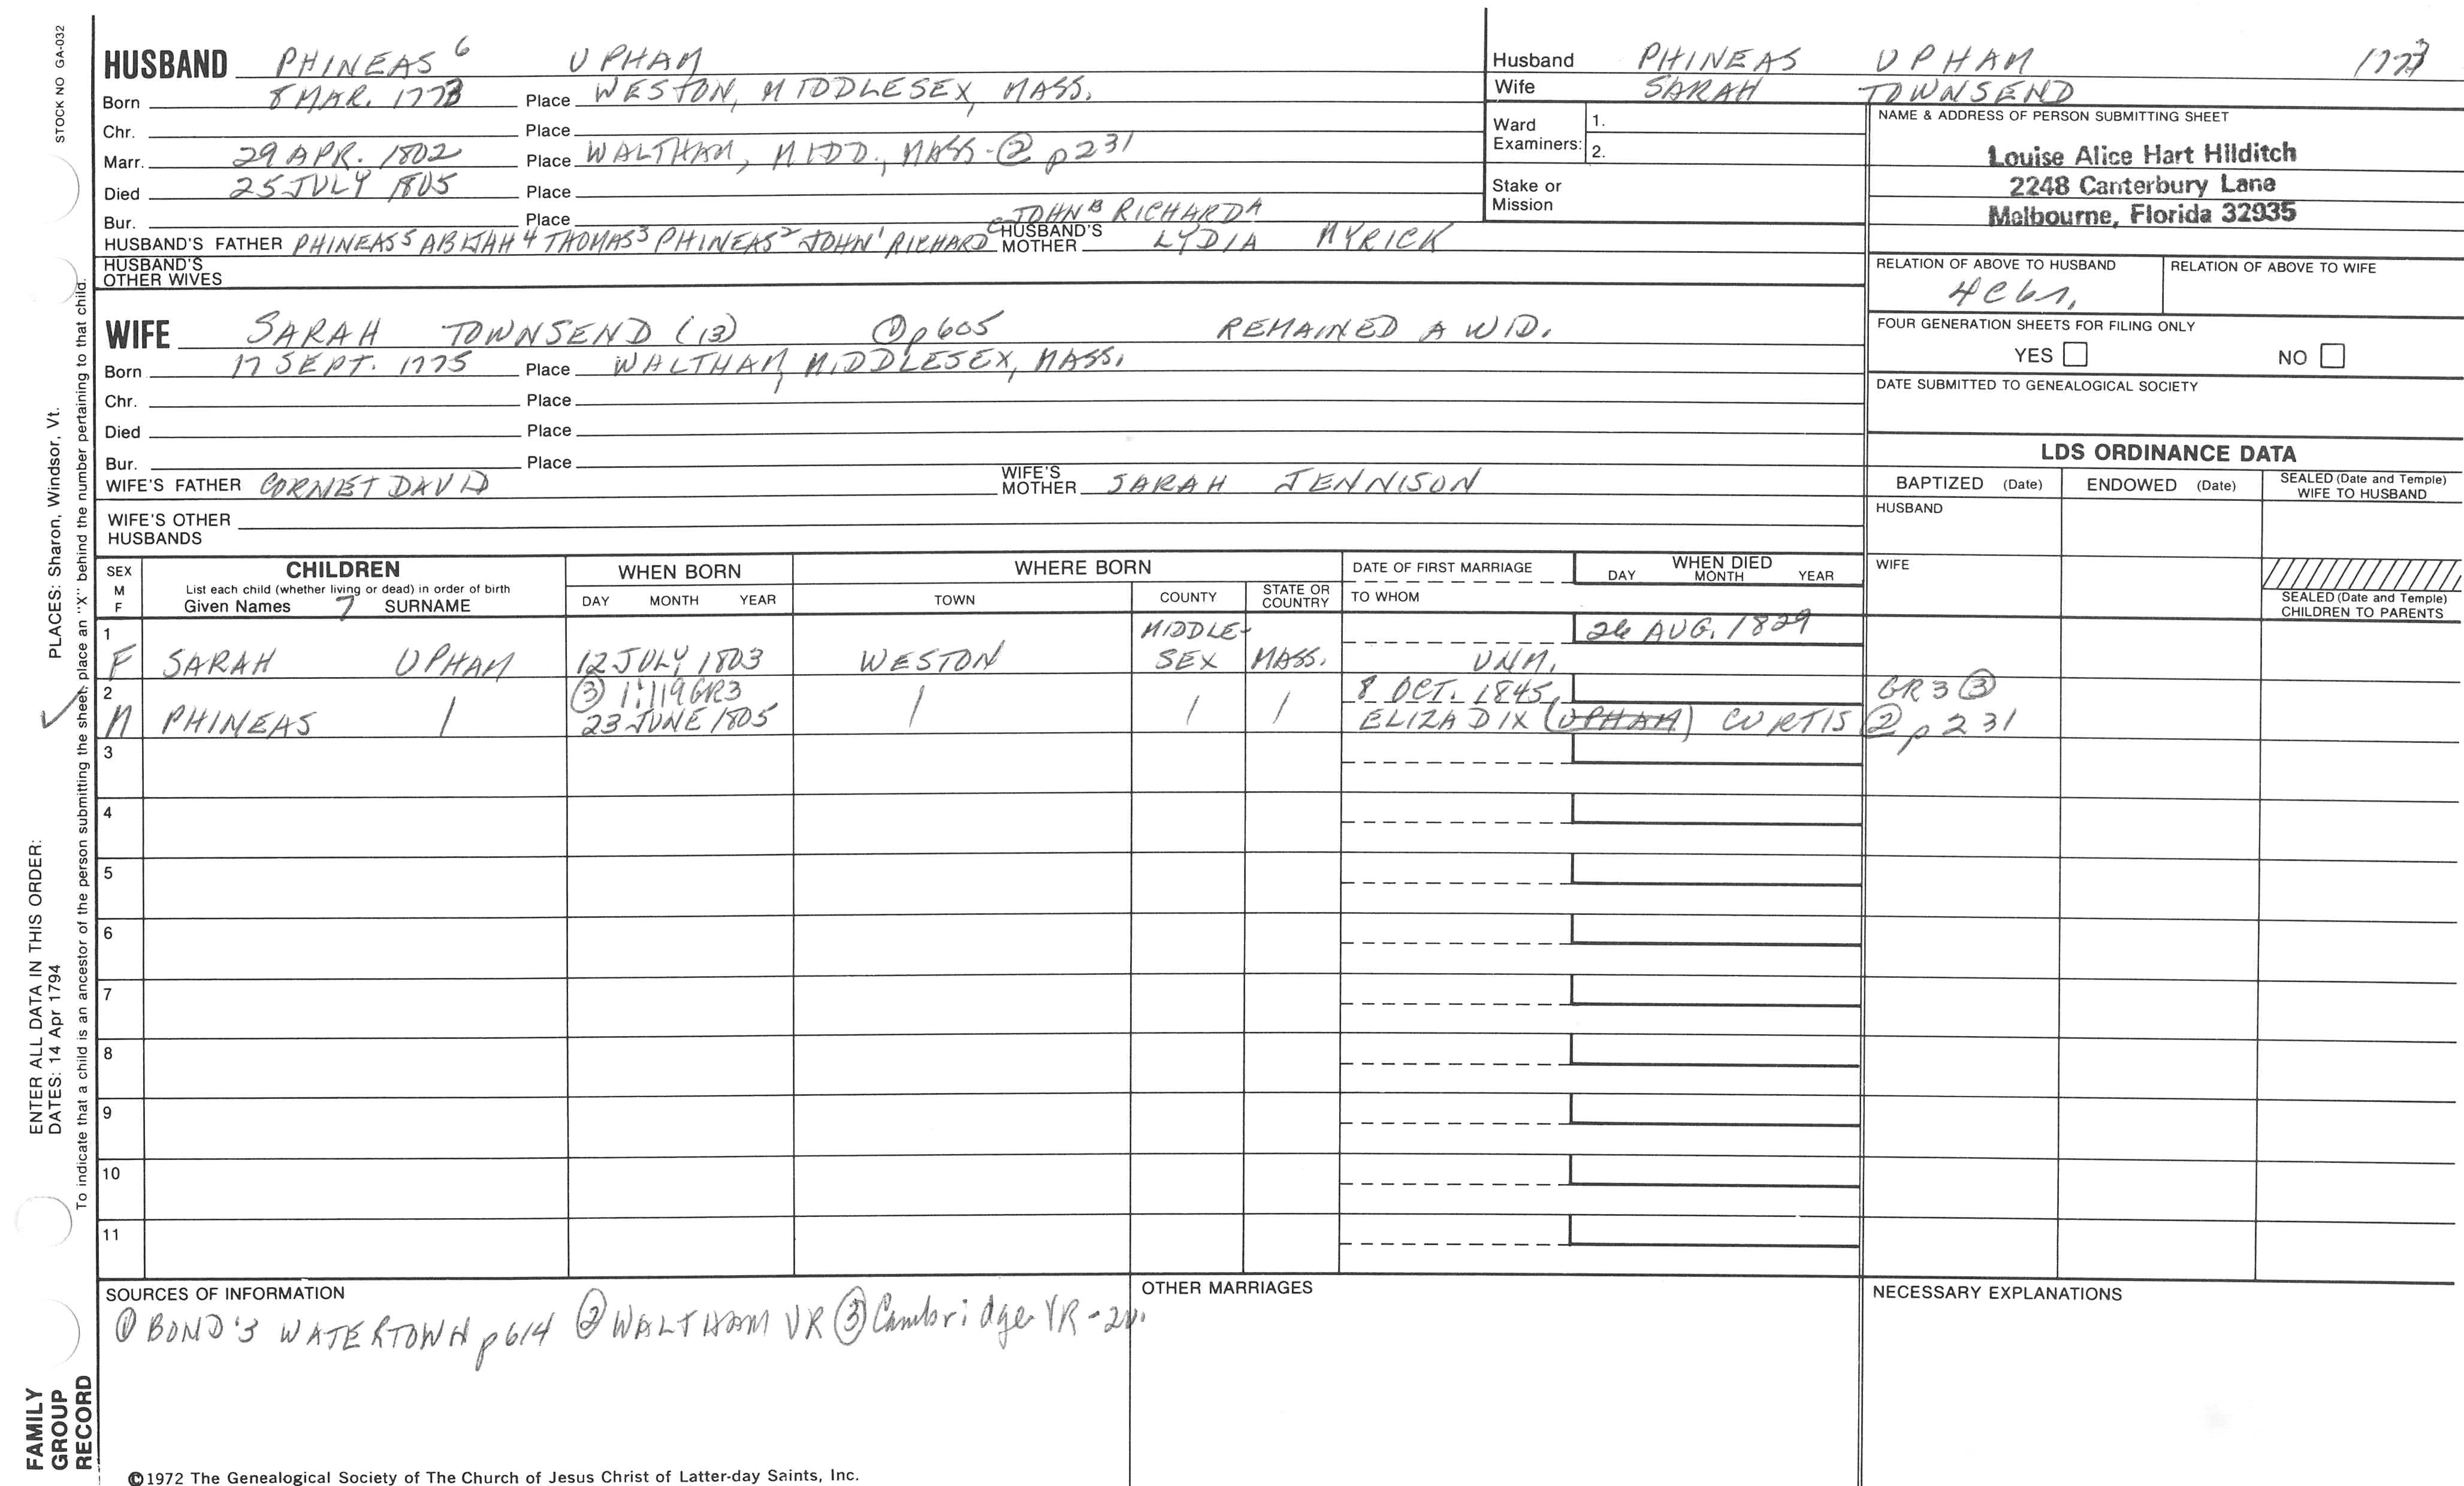 STOCK NO GA-032
PLACES: Sharon, Windsor, Vt.
ENTER ALL DATA IN THIS ORDER:
DATES: 14 Apr 1794
To indicate that a child is an ancestor of the person submitting the sheet, place an "X" behind the number pertaining to that child.
FAMILY
GROUP
RECORD
HUSBAND PHINEAS 6 UPHAM
Born 8 MAR. 1773 Place WESTON, MIDDLESEX, MASS.
Chr. Place
Marr. 29 APR. 1802 Place WALTHAM, MIDD., MASS. ② p231
Died 25 JULY 1805 Place
Bur. Place
JOHN B RICHARD A
HUSBAND'S FATHER PHINEAS 5 ABIJAH 4 THOMAS 3 PHINEAS 2 JOHN 1 RICHARD C HUSBAND'S MOTHER LYDIA MYRICK
HUSBAND'S
OTHER WIVES
WIFE SARAH TOWNSEND (13) ① p605 REMAINED A WID.
Born 17 SEPT. 1775 Place WALTHAM, MIDDLESEX, MASS.
Chr. Place
Died Place
Bur. Place
WIFE'S FATHER CORNET DAVID WIFE'S MOTHER SARAH JENNISON
WIFE'S OTHER
HUSBANDS
Husband PHINEAS UPHAM 1773
Wife SARAH TOWNSEND
Ward
Examiners:
1.
2.
Stake or
Mission
NAME & ADDRESS OF PERSON SUBMITTING SHEET
Louise Alice Hart Hilditch
2248 Canterbury Lane
Melbourne, Florida 32935
RELATION OF ABOVE TO HUSBAND RELATION OF ABOVE TO WIFE
4C6r,
FOUR GENERATION SHEETS FOR FILING ONLY
YES NO
DATE SUBMITTED TO GENEALOGICAL SOCIETY
LDS ORDINANCE DATA
BAPTIZED (Date) ENDOWED (Date) SEALED (Date and Temple) WIFE TO HUSBAND
HUSBAND
WIFE
SEALED (Date and Temple)
CHILDREN TO PARENTS
SEX
M
F
CHILDREN
List each child (whether living or dead) in order of birth
Given Names 7 SURNAME
WHEN BORN
DAY MONTH YEAR
WHERE BORN
TOWN COUNTY STATE OR COUNTRY
DATE OF FIRST MARRIAGE
TO WHOM
WHEN DIED
DAY MONTH YEAR
1 MIDDLE- 26 AUG. 1829
F SARAH UPHAM 12 JULY 1803 WESTON SEX MASS. UNM.
2 ③ 1:119 GR3 8 OCT. 1845 GR3 ③
✓ M PHINEAS / 23 JUNE 1805 / / / ELIZA DIX (UPHAM) CURTIS ② p231
3
4
5
6
7
8
9
10
11
SOURCES OF INFORMATION
① BOND'S WATERTOWN p614 ② WALTHAM VR ③ Cambridge VR - 2v.
OTHER MARRIAGES
NECESSARY EXPLANATIONS
©1972 The Genealogical Society of The Church of Jesus Christ of Latter-day Saints, Inc.